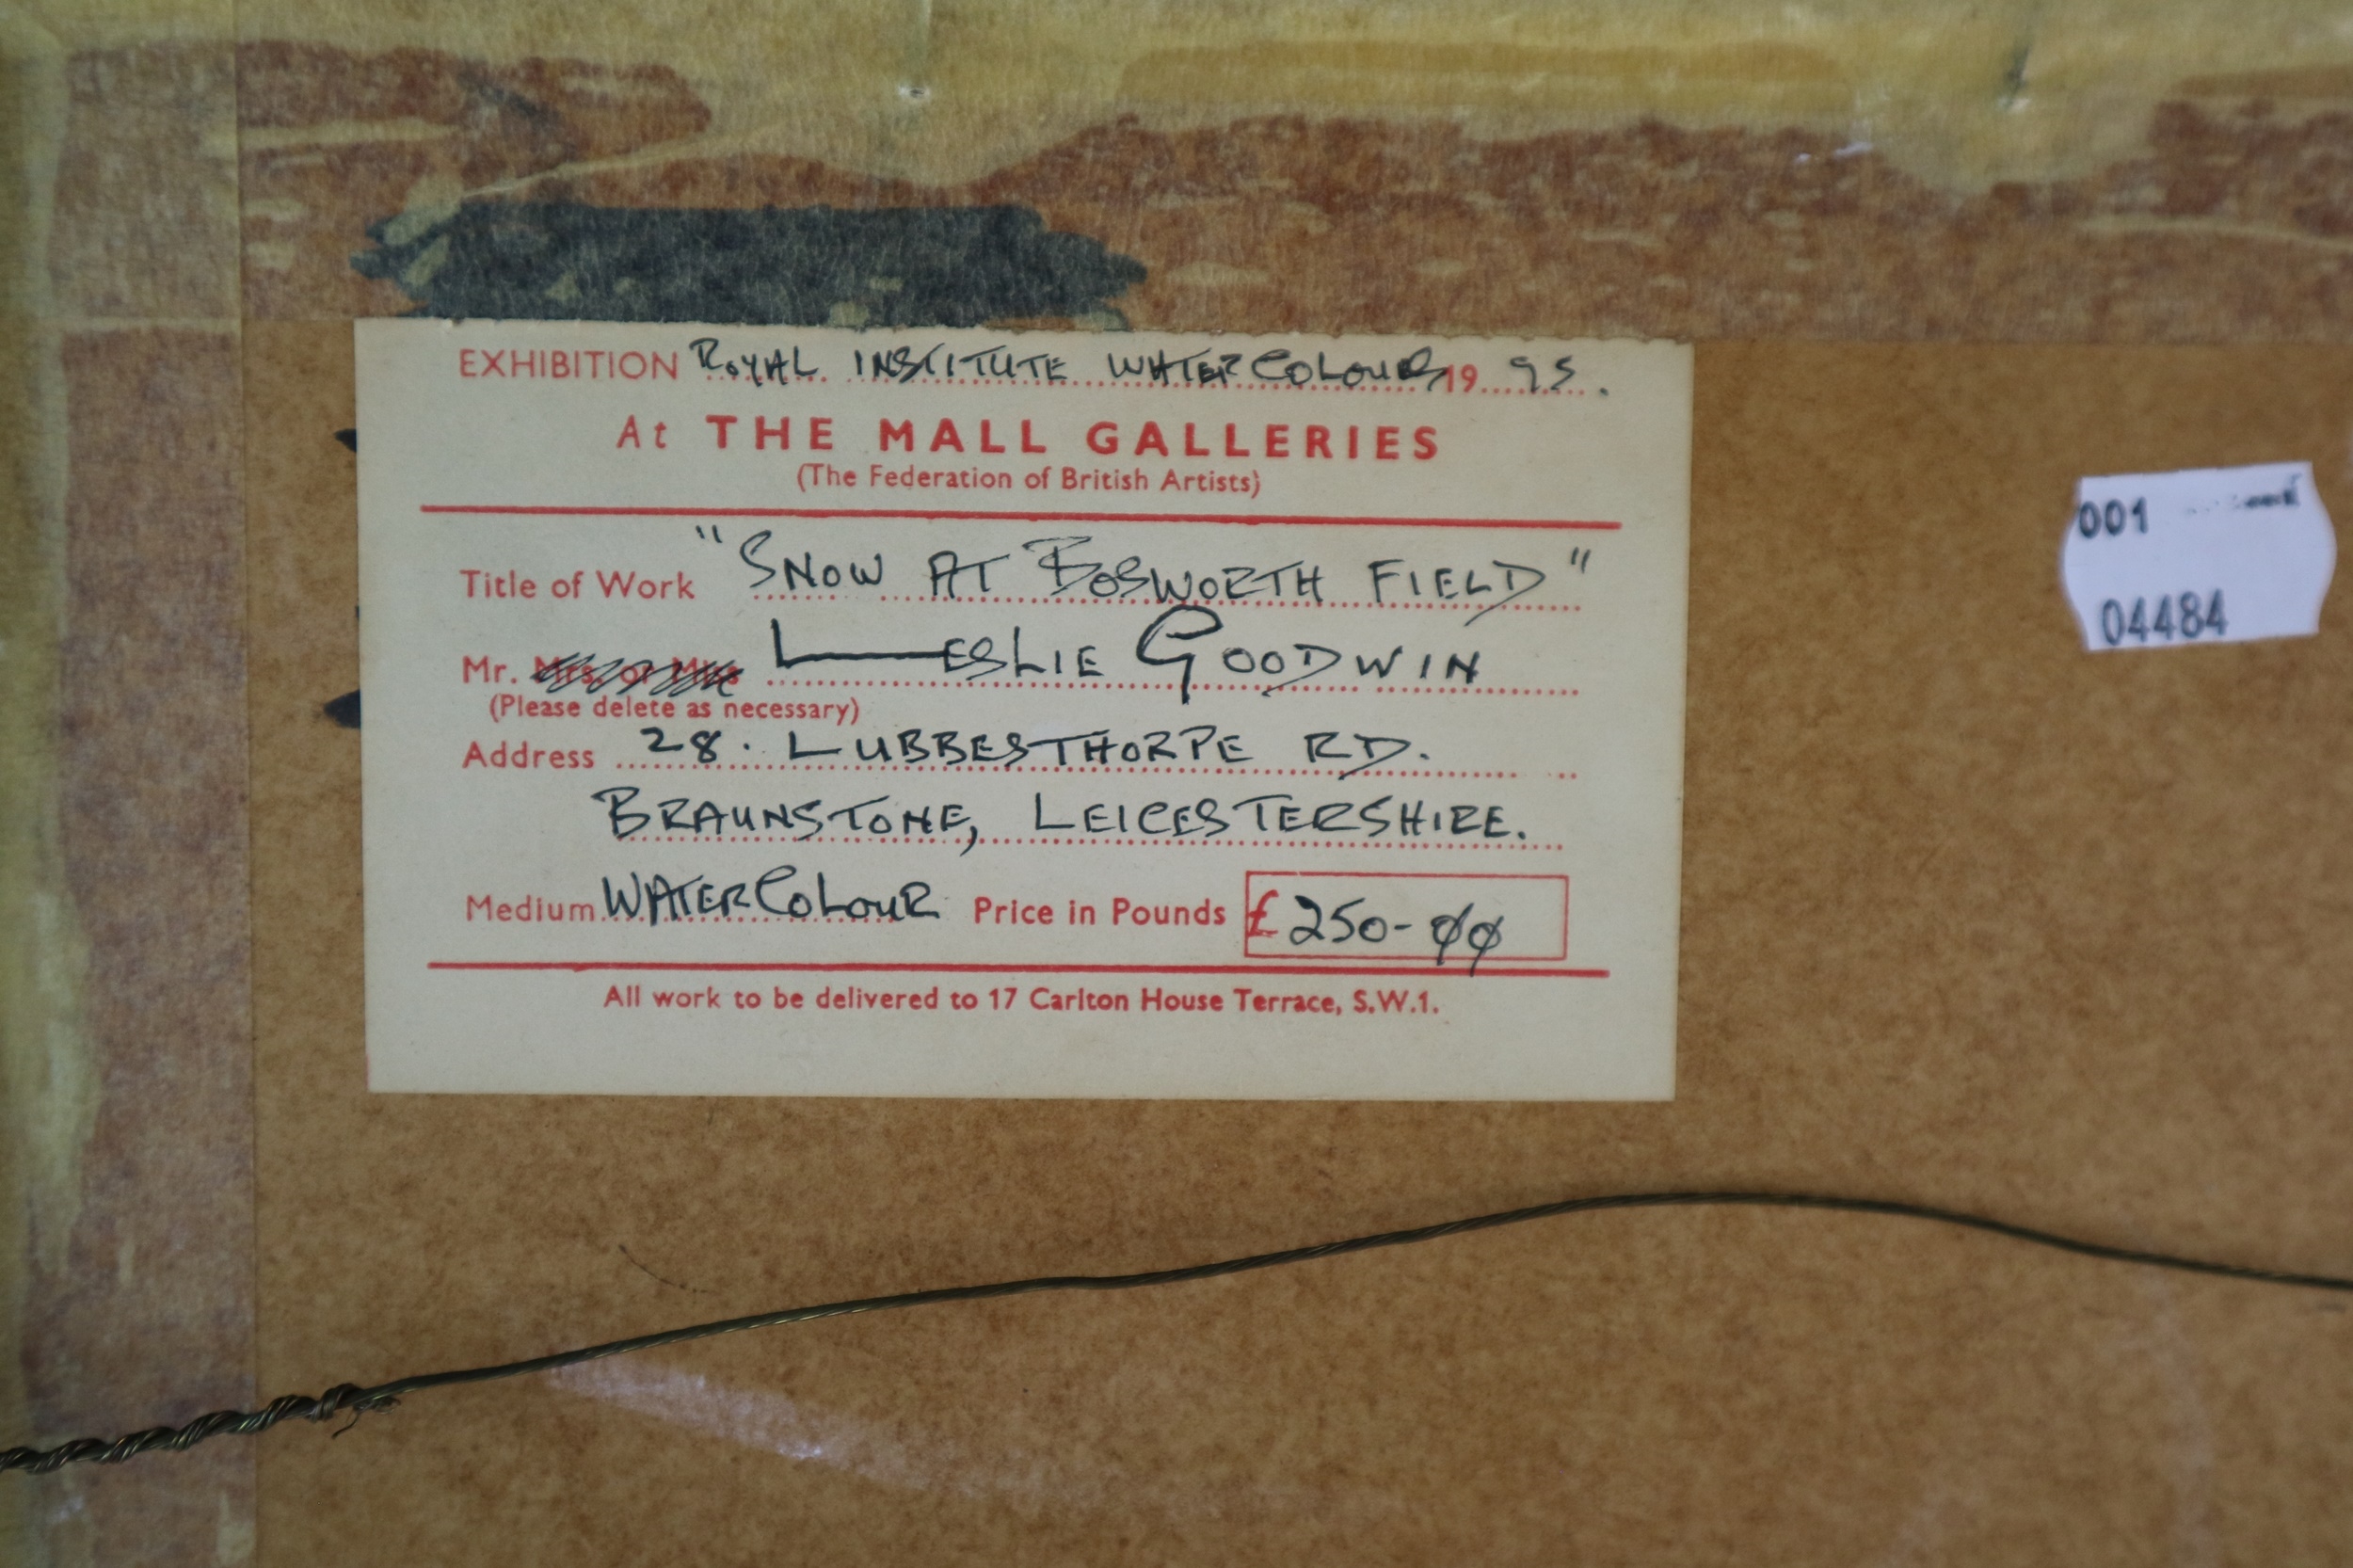 EXHIBITION ROYAL INSTITUTE WATERCOLOURS 1995.
At THE MALL GALLERIES
(The Federation of British Artists)
Title of Work "SNOW AT BOSWORTH FIELD"
Mr. Mrs. or Miss LESLIE GOODWIN
(Please delete as necessary)
Address 28. LUBBESTHORPE RD.
BRAUNSTONE, LEICESTERSHIRE.
Medium WATERCOLOUR Price in Pounds £250-00
All work to be delivered to 17 Carlton House Terrace, S.W.1.
001
04484